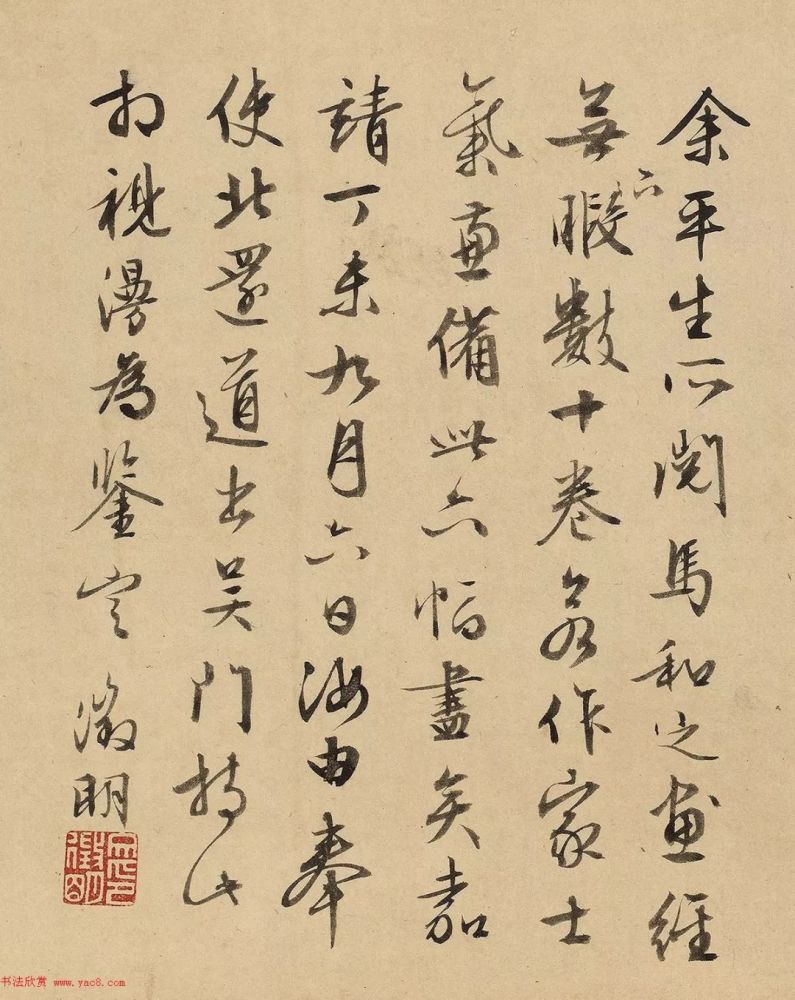 余平生所閱馬和之畫經
六
無暇數十卷若作家士
氣兼備此六幅盡矣嘉
靖丁未九月六日由奉
使北還道出吳門持此
相視漫為鑒定 徵明
徵明
书法欣赏 www.yac8.com